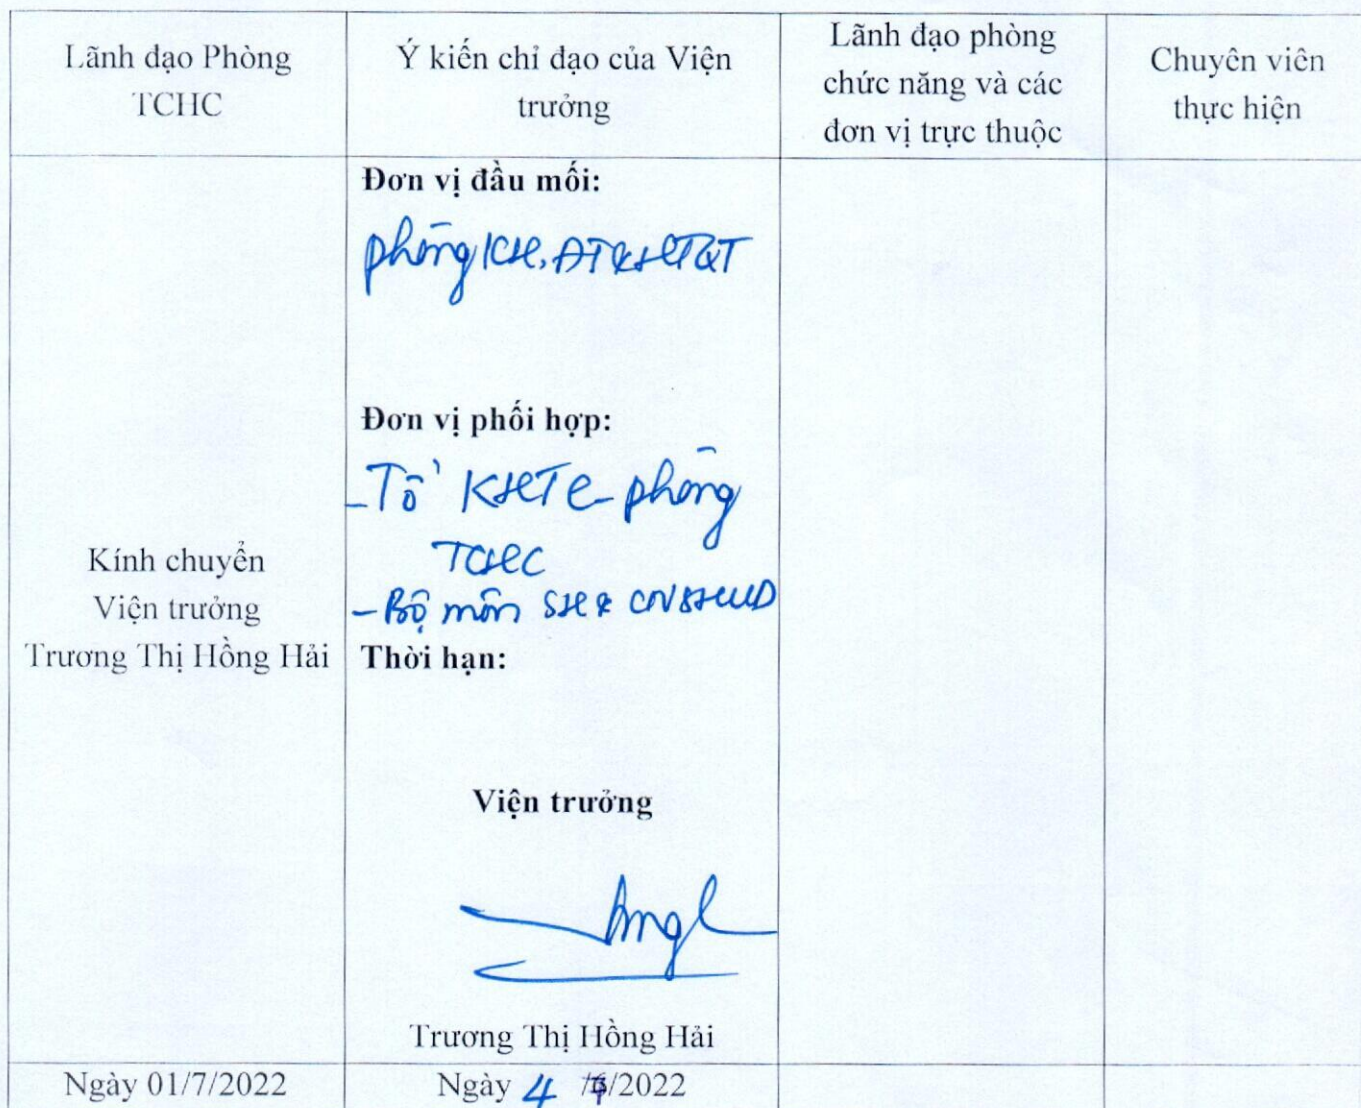 Lãnh đạo Phòng
TCHC
Ý kiến chỉ đạo của Viện
trưởng
Lãnh đạo phòng
chức năng và các
đơn vị trực thuộc
Chuyên viên
thực hiện
Kính chuyển
Viện trưởng
Trương Thị Hồng Hải
Đơn vị đầu mối:
phòng KH, ĐT&HTQT
Đơn vị phối hợp:
- Tổ KHTC - phòng
TCHC
- Bộ môn SH & CNSHUD
Thời hạn:
Viện trưởng
Trương Thị Hồng Hải
Ngày 01/7/2022
Ngày 4 /7/2022